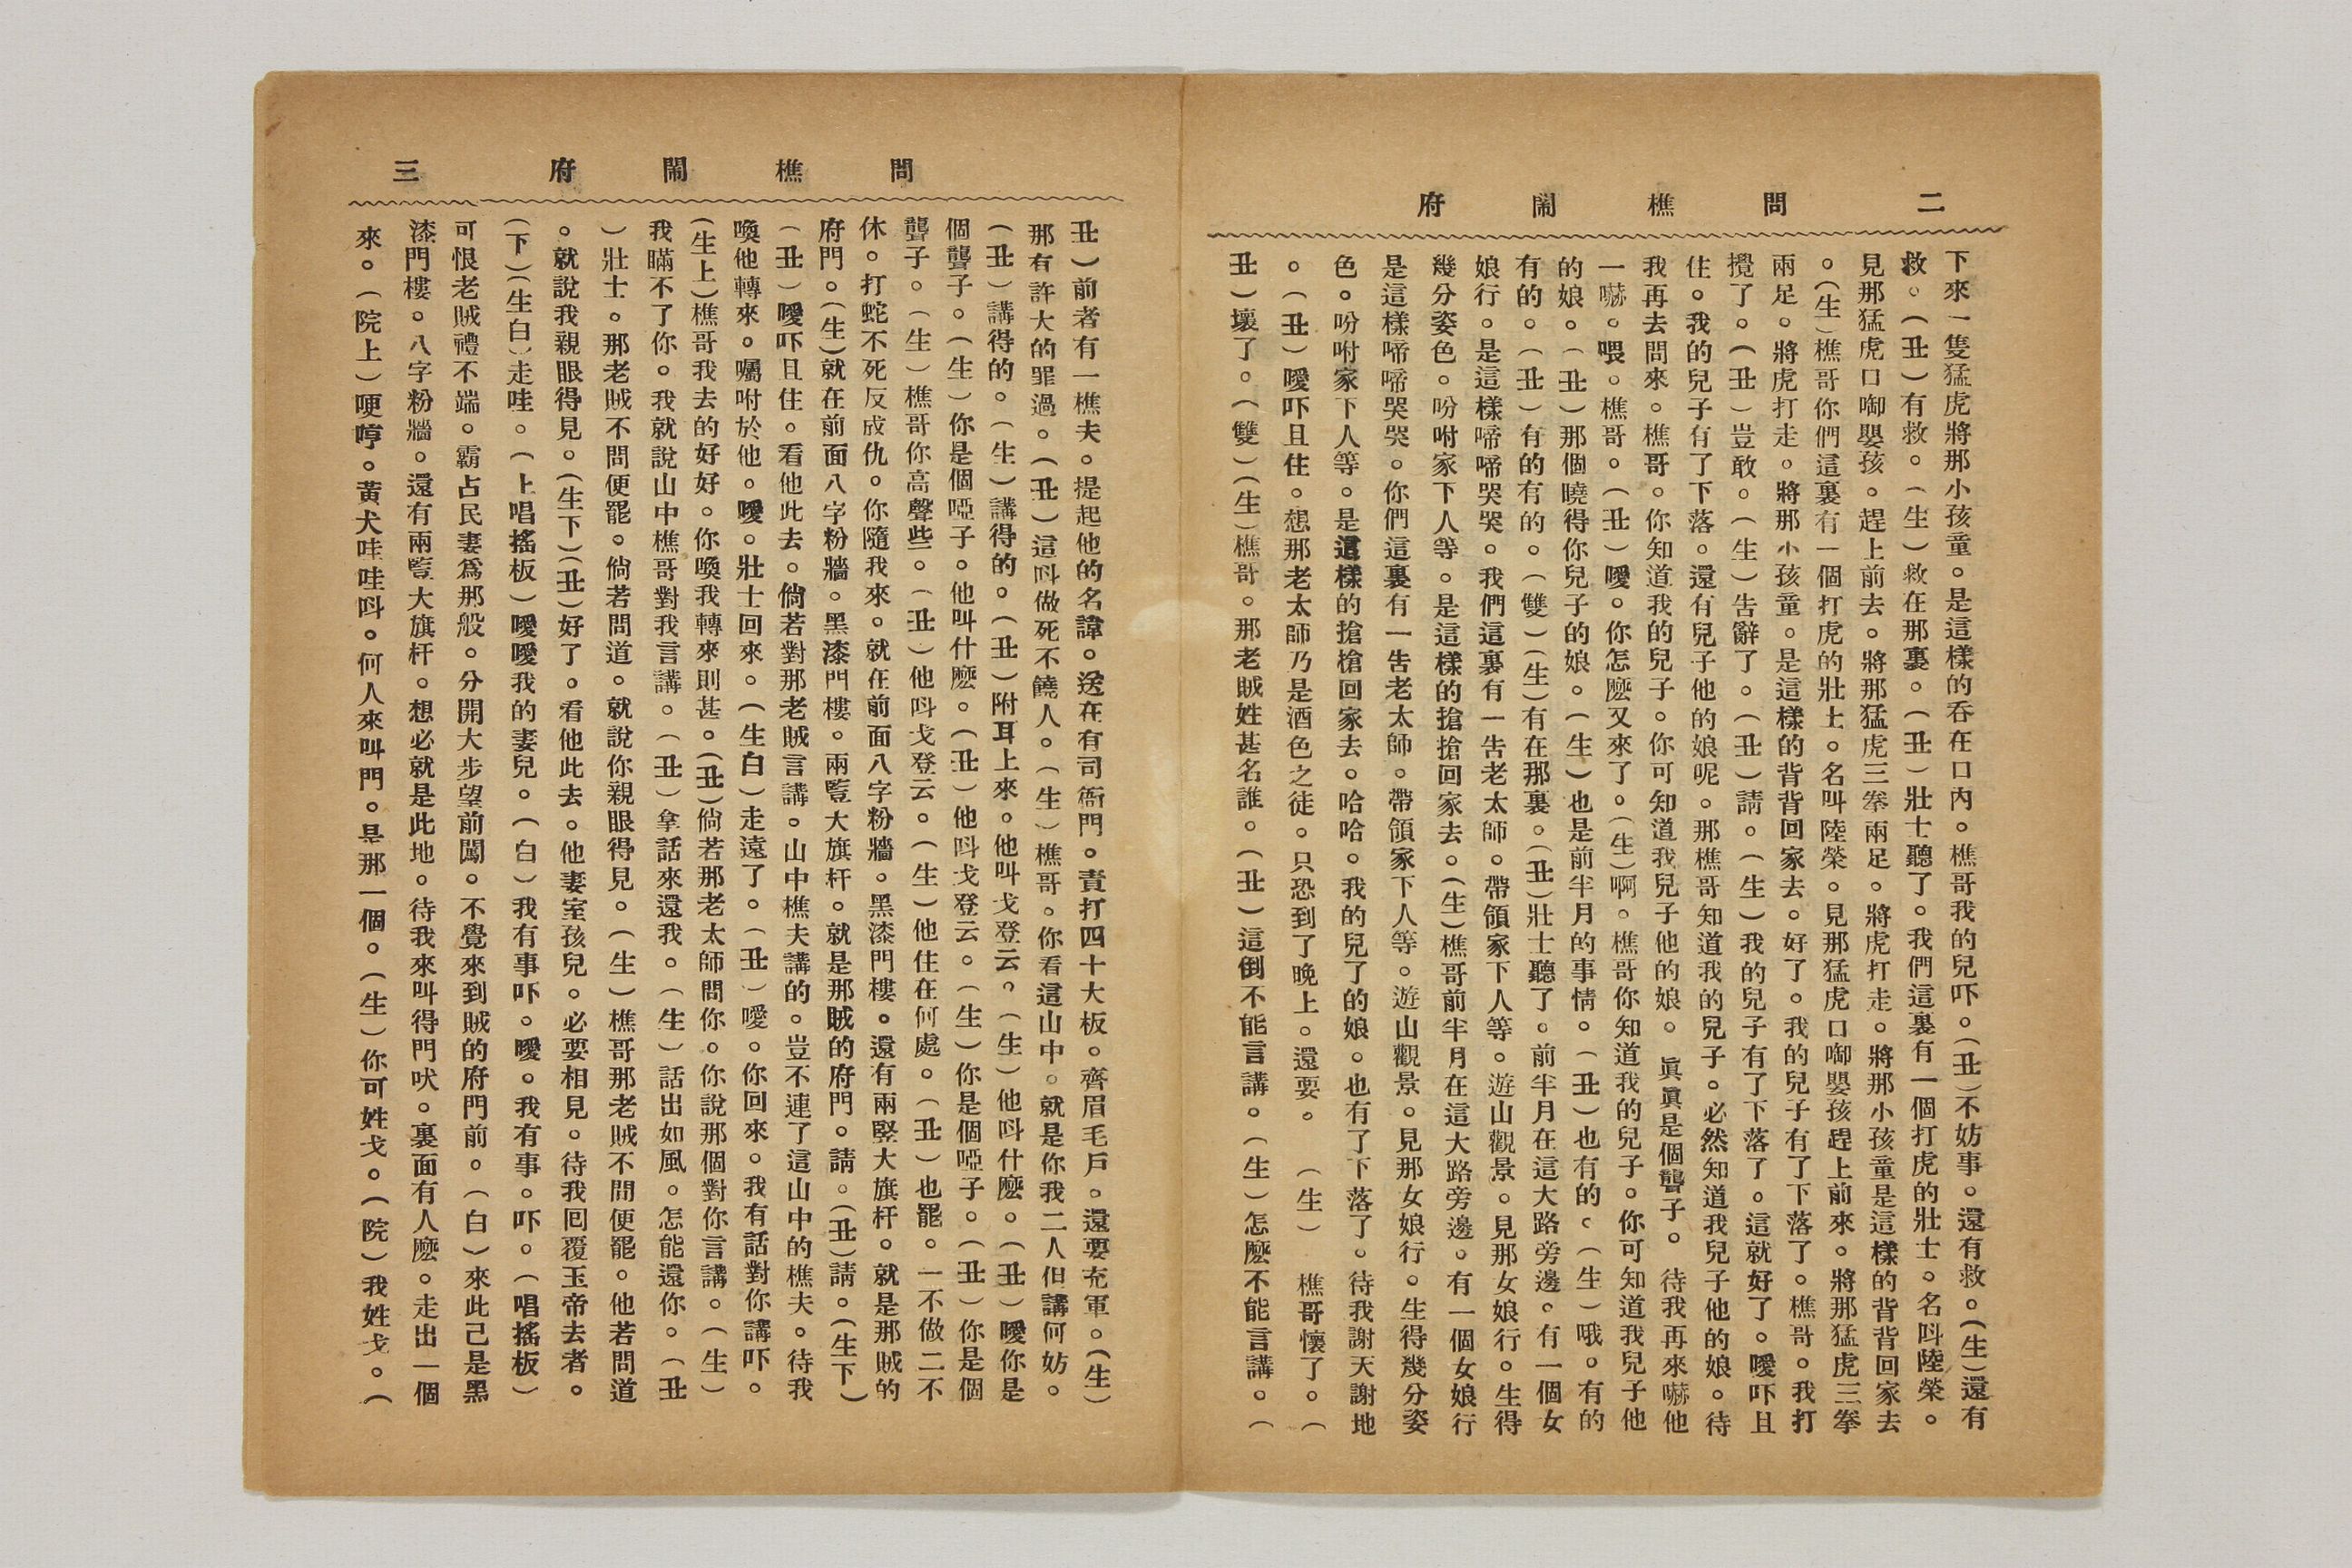 二　問樵鬧府
下來一隻猛虎將那小孩童。是這樣的吞在口內。樵哥我的兒吓。(丑)不妨事。還有救。(生)還有
救。(丑)有救。(生)救在那裏。(丑)壯士聽了。我們這裏有一個打虎的壯士。名呌陸榮。
見那猛虎口啣嬰孩。趕上前去。將那猛虎三拳兩足。將虎打走。將那小孩童是這樣的背背回家去
。(生)樵哥你們這裏有一個打虎的壯士。名叫陸榮。見那猛虎口啣嬰孩趕上前來。將那猛虎三拳
兩足。將虎打走。將那小孩童。是這樣的背背回家去。好了。我的兒子有了下落了。樵哥。我打
攪了。(丑)豈敢。(生)告辭了。(丑)請。(生)我的兒子有了下落了。這就好了。噯吓且
住。我的兒子有了下落。還有兒子他的娘呢。那樵哥知道我的兒子。必然知道我兒子他的娘。待
我再去問來。樵哥。你知道我的兒子。你可知道我兒子他的娘。眞眞是個聾子。待我再來嚇他
一嚇。喂。樵哥。(丑)噯。你怎麽又來了。(生)啊。樵哥你知道我的兒子。你可知道我兒子他
的娘。(丑)那個曉得你兒子的娘。(生)也是前半月的事情。(丑)也有的。(生)哦。有的
有的。(丑)有的有的。(雙)(生)有在那裏。(丑)壯士聽了。前半月在這大路旁邊。有一個女
娘行。是這樣啼啼哭哭。我們這裏有一吿老太師。帶領家下人等。遊山觀景。見那女娘行。生得
幾分姿色。吩咐家下人等。是這樣的搶搶回家去。(生)樵哥前半月在這大路旁邊。有一個女娘行
是這樣啼啼哭哭。你們這裏有一吿老太師。帶領家下人等。遊山觀景。見那女娘行。生得幾分姿
色。吩咐家下人等。是這樣的搶槍回家去。哈哈。我的兒了的娘。也有了下落了。待我謝天謝地
。(丑)噯吓且住。想那老太師乃是酒色之徒。只恐到了晚上。還要。(生)樵哥懷了。(
丑)壞了。(雙)(生)樵哥。那老賊姓甚名誰。(丑)這倒不能言講。(生)怎麽不能言講。(
問樵鬧府　三
丑)前者有一樵夫。提起他的名諱。送在有司衙門。責打四十大板。齊眉毛戶。還要充軍。(生)
那有許大的罪過。(丑)這呌做死不饒人。(生)樵哥。你看這山中。就是你我二人但講何妨。
(丑)講得的。(生)講得的。(丑)附耳上來。他叫戈登云。(生)他呌什麽。(丑)噯你是
個聾子。(生)你是個啞子。他叫什麽。(丑)他呌戈登云。(生)你是個啞子。(丑)你是個
聾子。(生)樵哥你高聲些。(丑)他呌戈登云。(生)他住在何處。(丑)也罷。一不做二不
休。打蛇不死反成仇。你隨我來。就在前面八字粉牆。黑漆門樓。還有兩竪大旗杆。就是那賊的
府門。(生)就在前面八字粉牆。黑漆門樓。兩豎大旗杆。就是那賊的府門。請。(丑)請。(生下)
(丑)噯吓且住。看他此去。倘若對那老賊言講。山中樵夫講的。豈不連了這山中的樵夫。待我
喚他轉來。囑咐於他。噯。壯士回來。(生白)走遠了。(丑)噯。你回來。我有話對你講吓。
(生上)樵哥我去的好好。你喚我轉來則甚。(丑)倘若那老太師問你。你說那個對你言講。(生)
我瞞不了你。我就說山中樵哥對我言講。(丑)拿話來還我。(生)話出如風。怎能還你。(丑
)壯士。那老賊不問便罷。倘若問道。就說你親眼得見。(生)樵哥那老賊不問便罷。他若問道
。就說我親眼得見。(生下)(丑)好了。看他此去。他妻室孩兒。必要相見。待我囘覆玉帝去者。
(下)(生白)走哇。(上唱搖板)噯噯我的妻兒。(白)我有事吓。噯。我有事。吓。(唱搖板)
可恨老賊禮不端。霸占民妻爲那般。分開大步望前闖。不覺來到賊的府門前。(白)來此己是黑
漆門樓。八字粉牆。還有兩豎大旗杆。想必就是此地。待我來叫得門吠。裏面有人麽。走出一個
來。(院上)哽哼。黃犬哇哇呌。何人來叫門。是那一個。(生)你可姓戈。(院)我姓戈。(